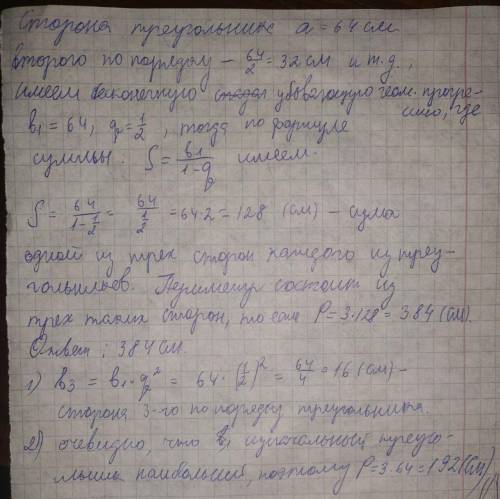 Сторона треугольник a = 64 см
Второго по порядку – 64/2 = 32 см и т.д.,
имеем бесконечную убывающую геом. прогре-
b₁ = 64, q = 1/2, тогда по формуле ссию, где
суммы: S = b₁/(1-q) имеем.
S = 64/(1-1/2) = 64/(1/2) = 64·2 = 128 (см) – сума
одной из трех сторон каждого из треу-
гольников. Периметр состоит из
трех таких сторон, то есть P = 3·128 = 384 (см).
Ответ: 384 см.
1) b₃ = b₁·q² = 64·(1/2)² = 64/4 = 16 (см) –
сторона 3-го по порядку треугольника.
2) очевидно, что изначальный треуго-
льник наибольший, поэтому P = 3·64 = 192 (см)